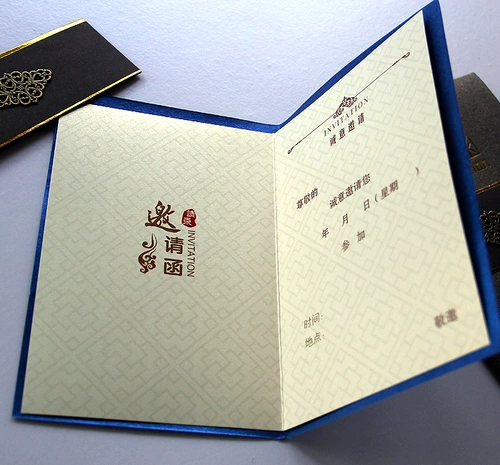 邀请函
INVITATION
INVITATION
诚意邀请
尊敬的
诚意邀请您
年 月 日(星期 )
参 加
时间:
地点:
敬邀